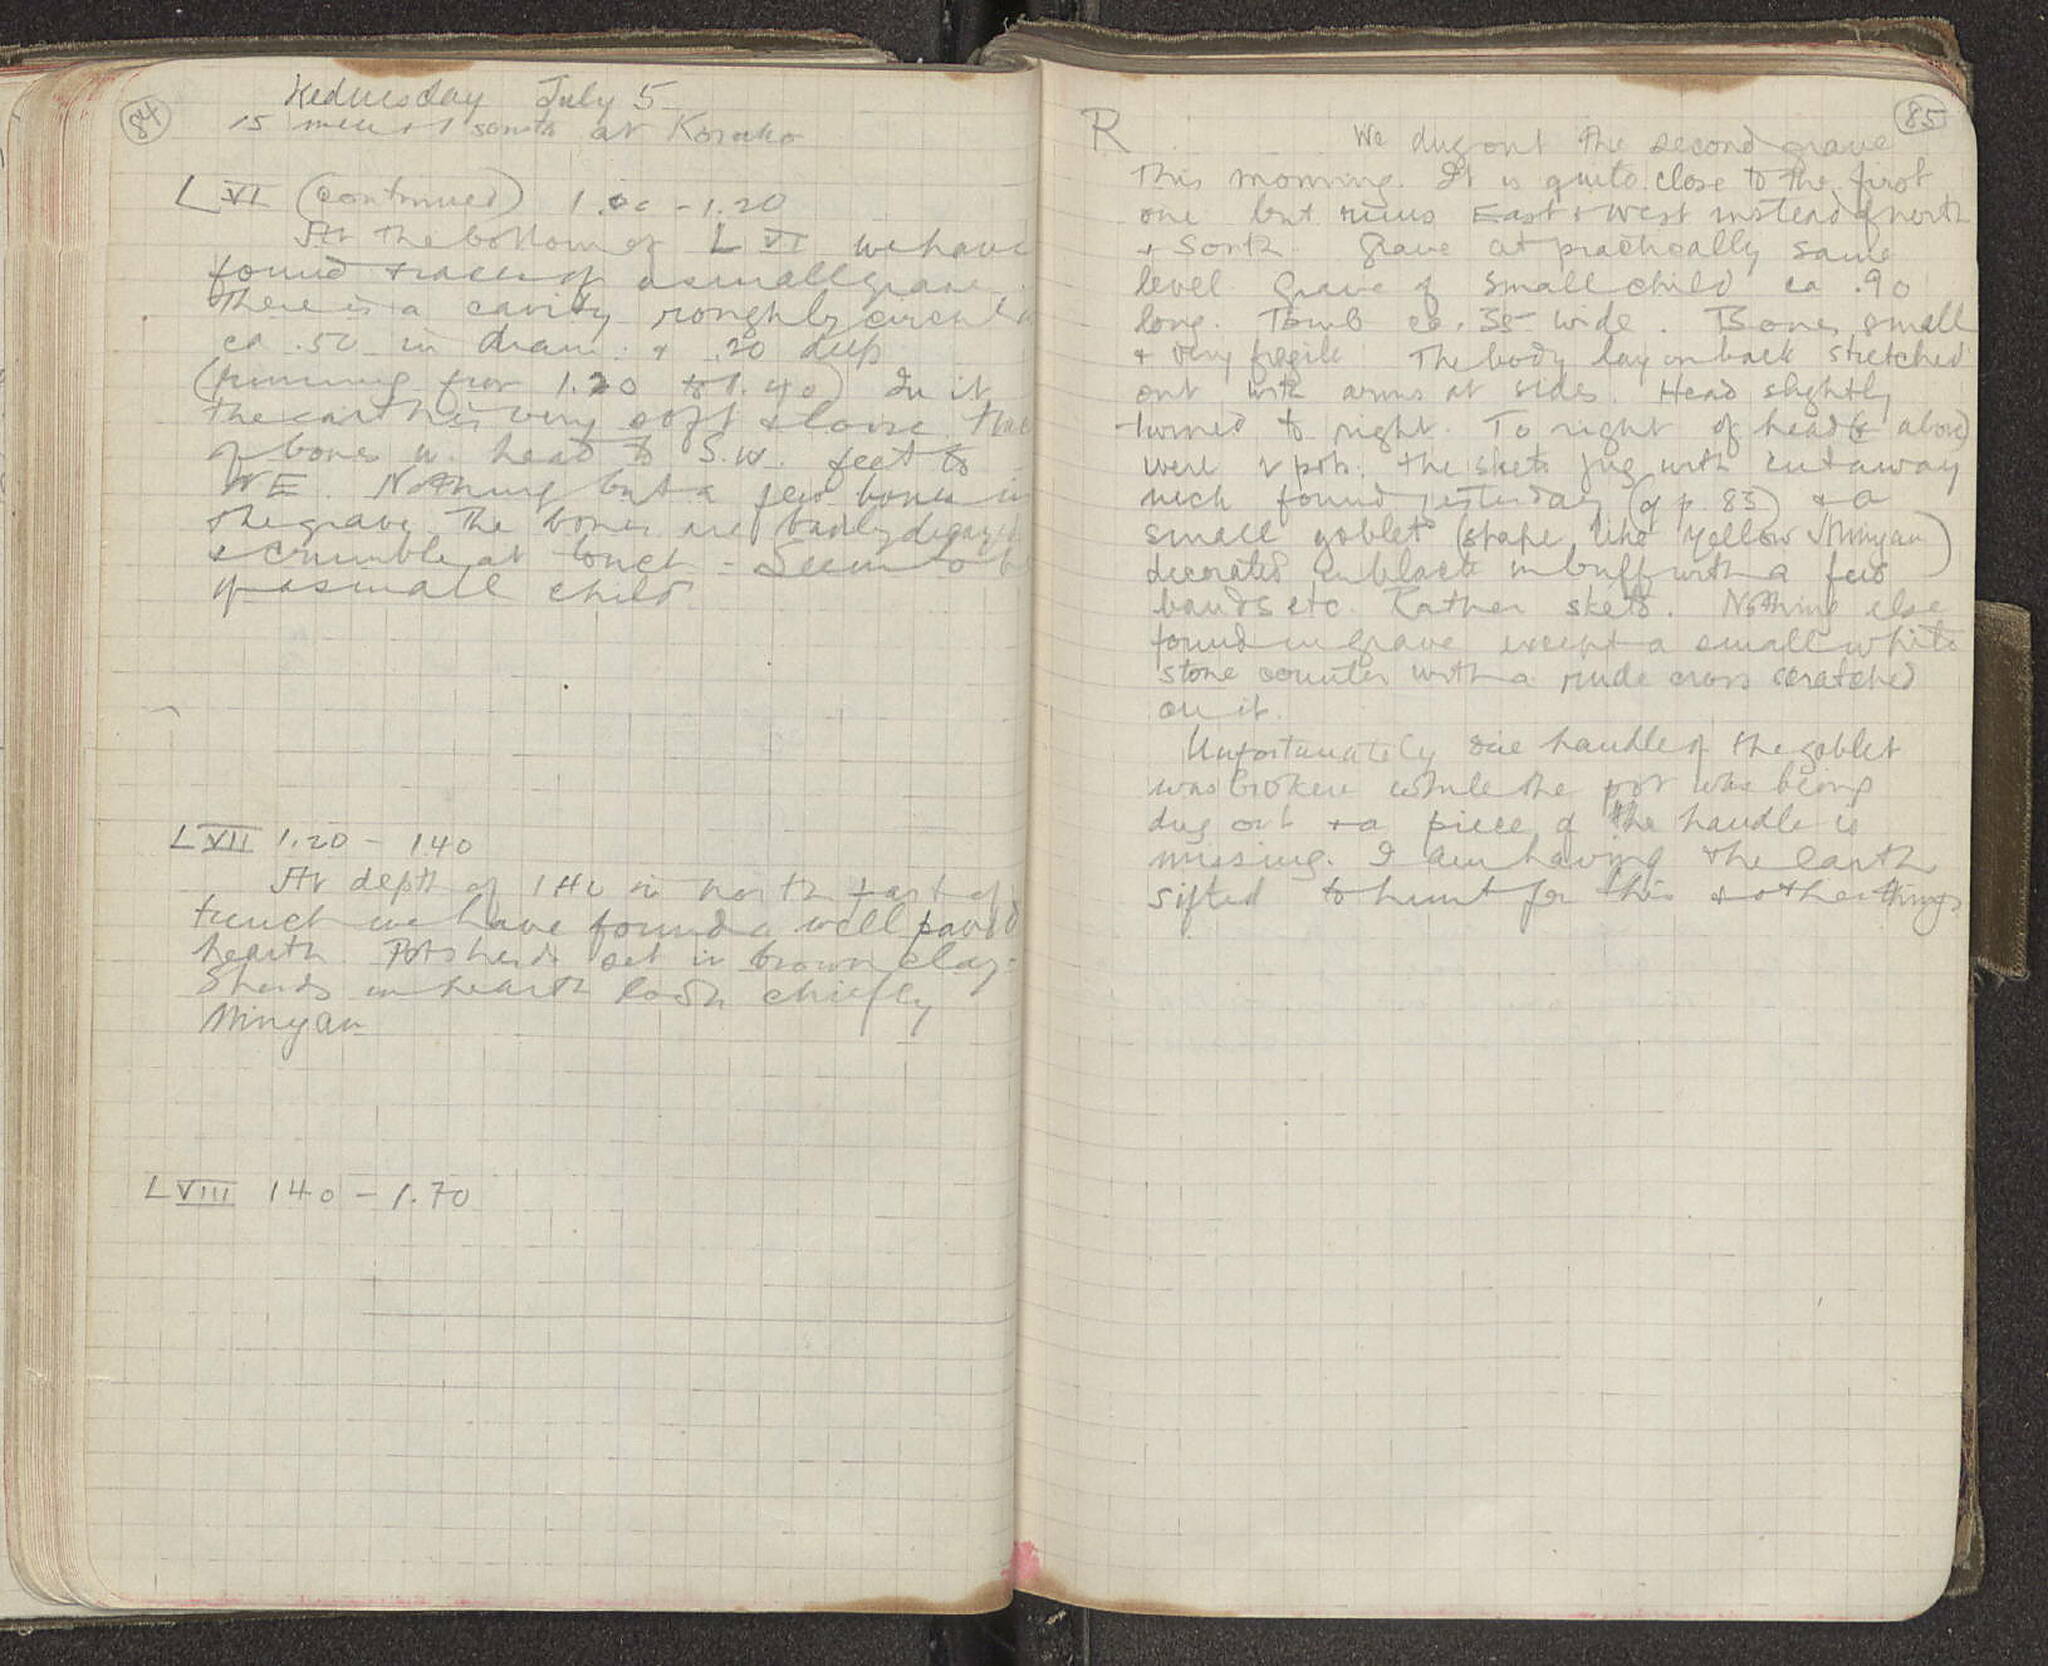 84
Wednesday July 5
15 men + 1 south at Korako
L VI (continued) 1.00 - 1.20
At the bottom of L VI we have
found traces of a small grave.
There is a cavity roughly circula
ca .50 in diam. + .20 deep
(running from 1.20 to 1.40) In it
the earth is very soft & loose.
of bones w. head to S.W. feet to
NE. Nothing but a few bones in
the grave. The bones are badly decayed
& crumble at touch - Seem to be
of a small child.
L VII 1.20 - 1.40
At depth of in north east of
trench we have found a well paved
hearth. Potsherds set in brown clay.
Sherds in hearth look chiefly
Minyan
L VIII 140 - 1.70
85
R
We dug out the second grave
this morning. It is quite close to the first
one but runs East + West instead of north
+ South. Grave at practically same
level. Grave of small child ca .90
long. Tomb ca .35 wide. Bones small
+ very fragile. The body lay on back stretched
out with arms at sides. Head slightly
turned to right. To right of head (& above)
were 2 pots. the jug with cutaway
neck found yesterday (cf p. 83) + a
small goblet (shape like Yellow Minyan)
decorated in black on buff with a few
bands etc. Rather. Nothing else
found in grave except a small white
stone counter with a rude cross scratched
on it.
Unfortunately one handle of the goblet
was broken while the pot was being
dug out + a piece of the handle is
missing. I am having the earth
sifted to hunt for this & other things